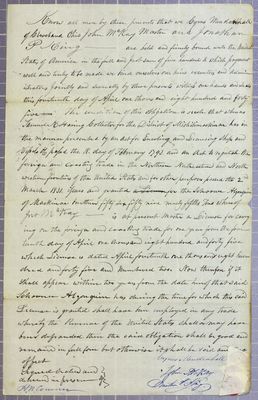 Know all men by these presents that we Cyrus Mendenhall
of Cleveland Ohio John McKay Master and Jonathan
P. King are held and firmly bound unto the United
States of America in the full and just sum of five hundred to which payment
well and truly to be made we bind ourselves our heirs executors and admin-
istrators jointly and severally by these presents witness our hands and seals
this fourteenth day of April one thousand eight hundred and forty
five The condition of this obligation is such that whereas
Samuel K Haring Collector for the District of Michilimackinac has in
the manner prescribed by an act for Enrolling and Licensing Ships and
Vessels passed the 18 day of February 1793 and an act to regulate the
foreign and coasting trade in the Northern Northeastern and North
western frontiers of the United States and for other purposes passed the 2nd
March 1831 given and granted a License for the Schooner Algonquin
of Mackinac burthen fifty six fifty nine ninety fifths tons whereof
John McKay is at present Master a License for carry-
ing on the foreign and coasting trade for one year from the four-
teenth day of April one thousand eight hundred and forty five
which License is dated April fourteenth one thousand eight hun-
dred and forty five and numbered two Now therefore if it
shall appear within two years from the date hereof that said
Schooner Algonquin has during the time for which this said
License is granted shall have been employed in any trade
whereby the Revenue of the United States shall or may have
been defrauded then the said obligation shall be good and
remain in full force but otherwise it shall be void and no
effect
Cyrus Mendenhall
Signed Sealed and
John McKay
delivered in presence of